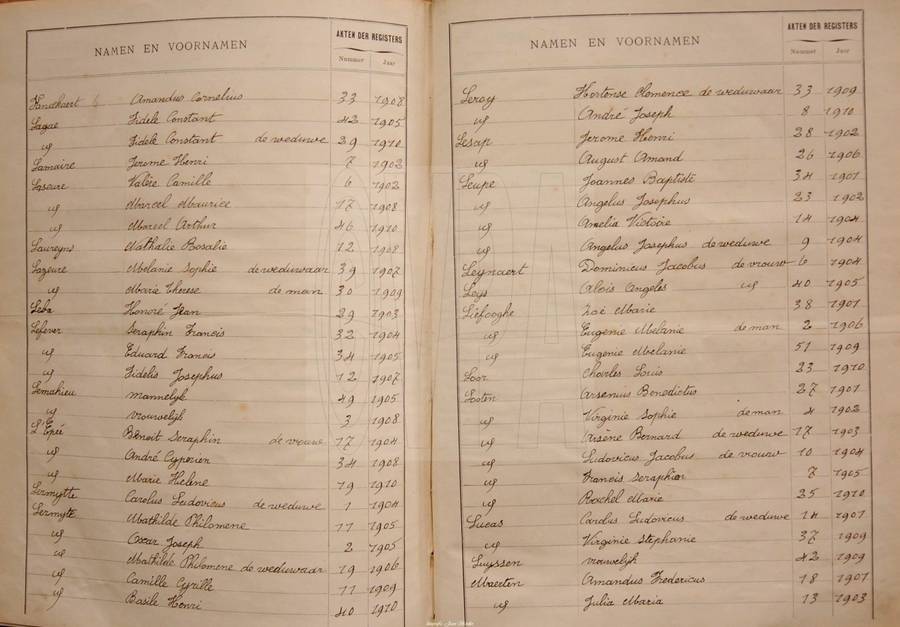 NAMEN EN VOORNAMEN AKTEN DER REGISTERS
Nummer Jaar
Amandus Cornelius 33 1908
Lagae Fidele Constant 42 1905
id Fidele Constant de weduwe 29 1910
Lamaire Jerome Henri 7 1902
Laseure Valère Camille 6 1902
id Marcel Maurice 17 1908
id Marcel Arthur 46 1910
Laureyns Nathalie Rosalie 12 1908
Lazeure Melanie Sophie de weduwaar 39 1907
id Marie Therese de man 30 1909
Leba Honoré Jean 29 1903
Lefever Seraphin Francis 32 1904
id Eduard Francis 34 1905
id Fidelis Josephus 12 1907
Lemahieu mannelijk 49 1905
id vrouwelijk 3 1908
L'Epée Benoit Seraphin de vrouw 17 1904
id André Cyperien 34 1908
id Marie Helene 19 1910
Lermytte Carolus Ludovicus de weduwe 1 1904
Lermyte Mathilde Philomene 11 1905
id Oscar Joseph 2 1905
id Mathilde Philomene de weduwaar 19 1906
id Camille Cyrille 11 1909
id Basile Henri 40 1910
NAMEN EN VOORNAMEN AKTEN DER REGISTERS
Nummer Jaar
Leroy Hortense Clemence de weduwaar 33 1909
id André Joseph 8 1910
Lesap Jerome Henri 28 1902
id August Amand 26 1906
Leupe Joannes Baptiste 34 1901
id Angelus Josephus 23 1902
id Amelia Victoire 14 1904
id Angelus Josephus de weduwe 9 1904
Leynaert Dominicus Jacobus de vrouw 6 1904
Leys Aloïs Angeles id 40 1905
Liefooghe Zoë Marie 38 1901
id Eugenie Melanie de man 2 1906
id Eugenie Melanie 51 1909
Loor Charles Louis 23 1910
Losten Arsenius Benedictus 27 1901
id Virginie Sophie de man 4 1902
id Arsène Bernard de weduwe 17 1903
id Ludovicus Jacobus de vrouw 10 1904
id Francis Seraphier 7 1905
id Rachel Marie 25 1910
Lucas Carolus Ludovicus de weduwe 14 1901
id Virginie Stephanie 37 1909
Luyssen vrouwelijk 42 1909
Maerten Amandus Fredericus 18 1901
id Julia Maria 13 1903